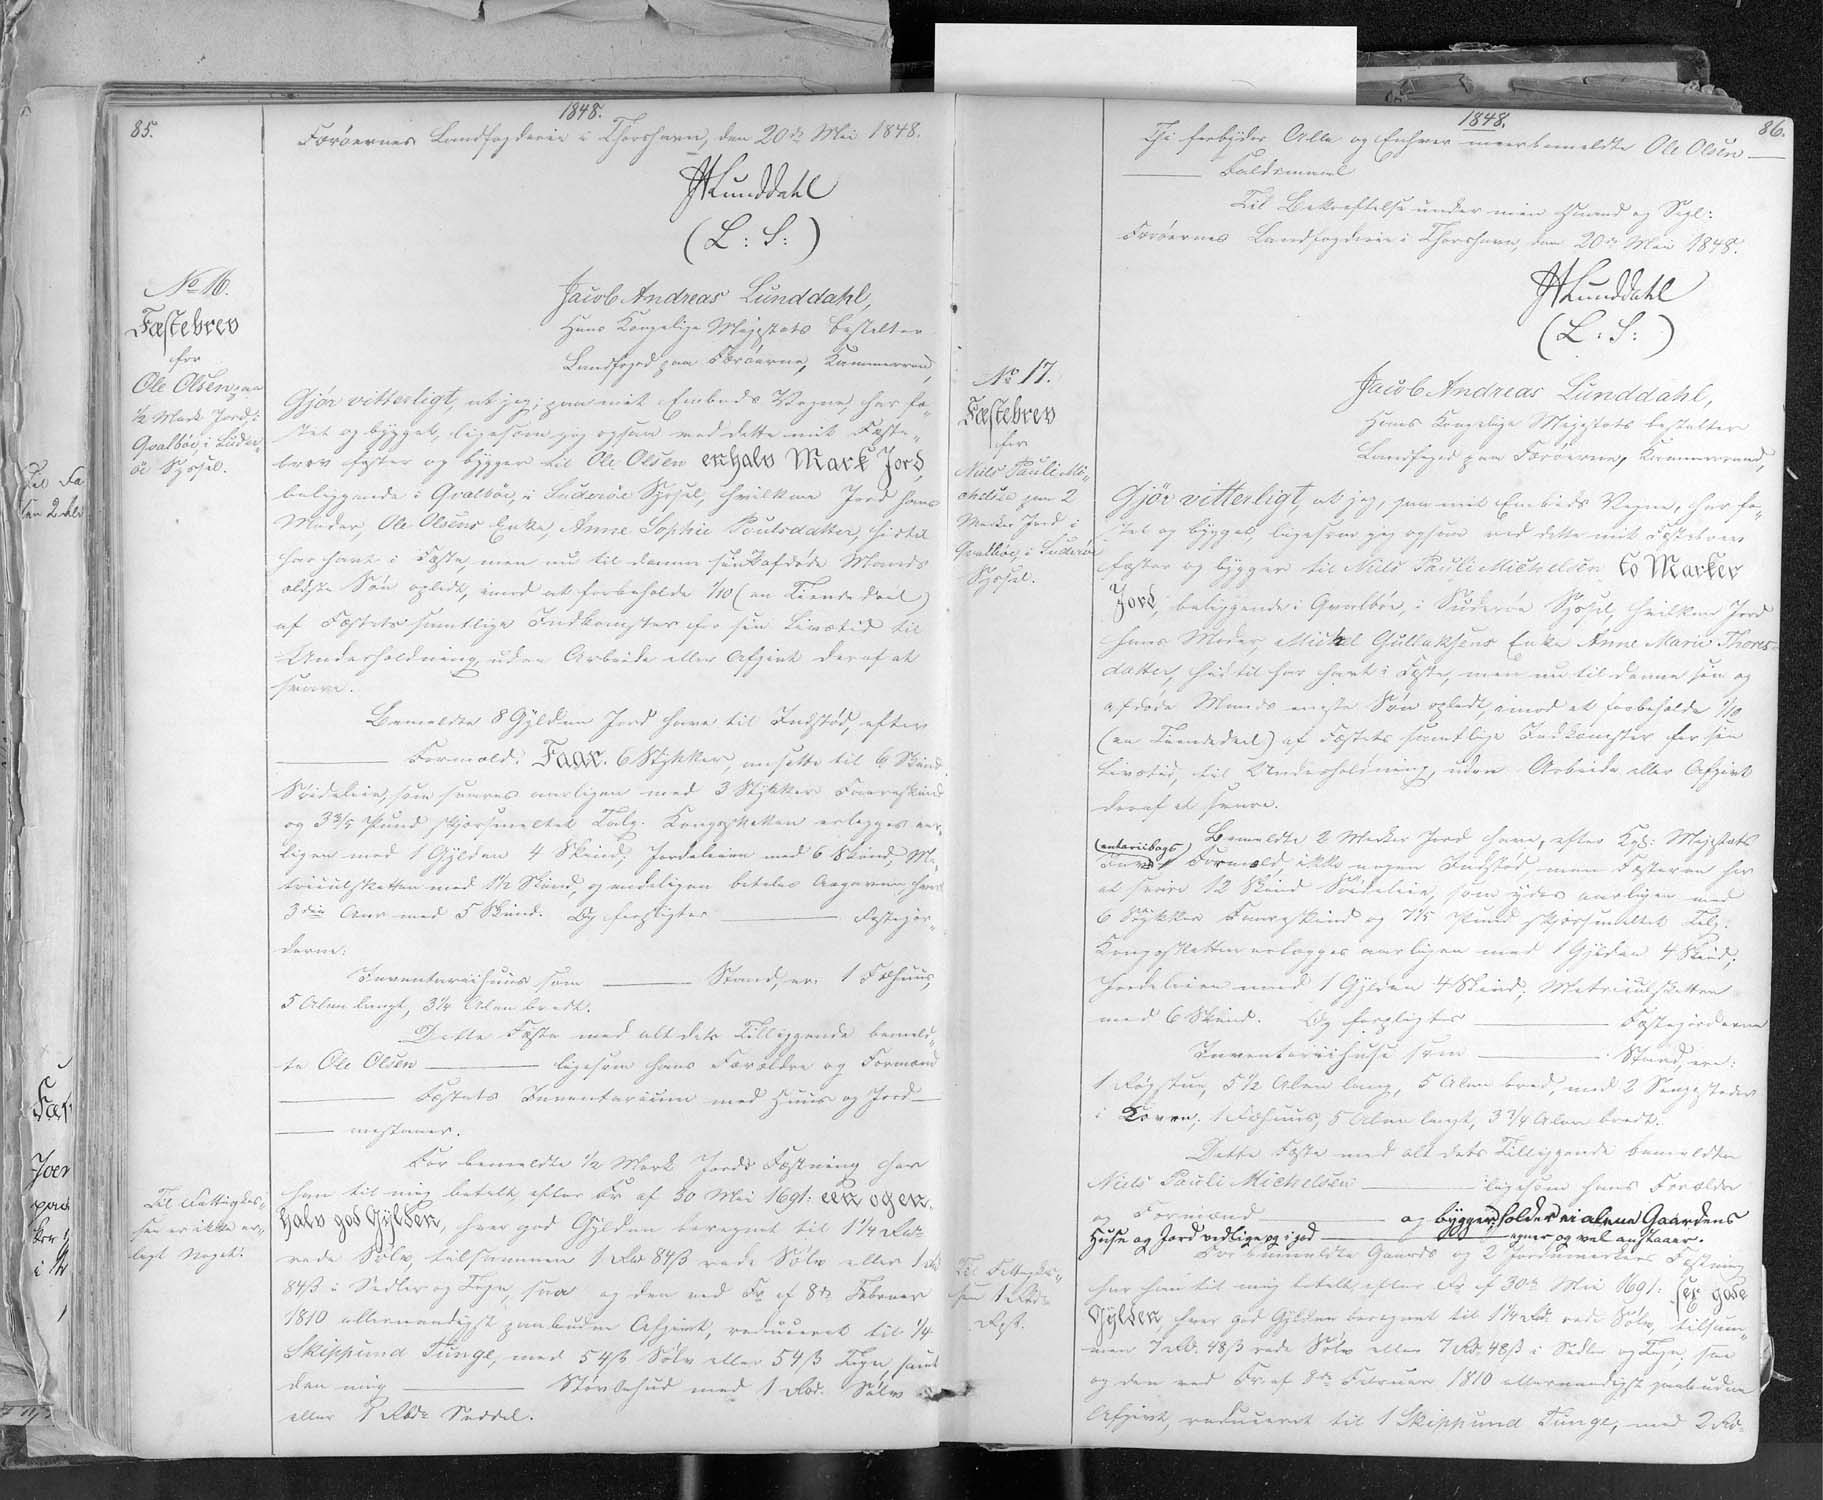 85.
1848.
Færöernes Landfogderie i Thorshavn, den 20de Mai 1848.
HLunddahl
(L: S:)
No 16.
Fæstebrev
for
Ole Olsen paa
1/2 Mark Jord i
Qvalböe, i Süder-
öe Syssel.
Jacob Andreas Lunddahl,
Hans Kongelige Majestæts bestalter
Landfoged paa Færöerne, Kammerraad,
Gjör vitterligt, at jeg, paa mit Embeds Vegne, har fæ-
stet og bygget, ligesom jeg ogsaa med dette mit Fæste-
brev fæster og bygger til Ole Olsen en halv Mark Jord,
beliggende i Qvalböe, i Suderöe Syssel, hvilken Jord hans
Moder, Ole Olsens Enke, Anne Sophie Poulsdatter, hidtil
har havt i Fæste, men nu til denne sin & afdöde Mands
ældste Sön opladt, imod at forbeholde 1/10 (en Tiende deel)
af Fæstets samtlige Indkomster for sin Livstid til
Underholdning uden Arbeide eller Afgivt deraf at
svare.
Bemeldte 8 Gylden Jord have til Indstöd, efter
Formold: Faar. 6 Stykker, ansatte til 6 Skind
Söideleie, som svares aarligen med 3 Stykker Faareskind
og 3 3/5 Pund skjærsmeltet Talg. Kongsskatten erlegges aar-
ligen med 1 Gylden 4 Skind, Jordeleien med 6 Skind, Ma-
triculskatten med 1 1/2 Skind, og endeligen betales Aagaven hver
3die Aar med 5 Skind. Og forpligtes Fæstejor-
derne:
Inventariihuus som Stand, er: 1 Fæhuus,
5 Alen langt, 3 1/4 Alen bredt.
Dette Fæste med alt dets Tilliggende bemeld-
te Ole Olsen ligesom hans Forældre og Formænd
Fæstets Inventarium med Huus og Jord
undtaner.
For bemeldte 1/2 Mark Jords Fæstning har
han til mig betalt, efter Fr af 30 Mai 1691: een og en
halv god Gylden, hver god Gylden beregnet til 1 1/4 Rd
rede Sölv, tilsammen 1 Rd 84 ß rede Sölv eller 1 Rd
84 ß i Sedler og Tegn, saa og den ved Fr af 8de Februar
1810 allernaadigst paabudne Afgivt, reduceret til 1/4
Skippund Tunge, med 54 ß Sölv eller 54 ß Tegn, samt
den mig Stövlehud med 1 Rbd. Sölv
eller 1 Rbd Seddel.
Til Fattigkas-
sen er ikke er-
lagt Noget.
1848.
86.
Thi forbydes Alle og Enhver meerbemeldte Ole Olsen
Faldsmaal
Til Bekræftelse under min Haand og Segl:
Færöernes Landfogderie i Thorshavn, den 20de Mai 1848.
HLunddahl
(L: S:)
No 17.
Fæstebrev
for
Niels Pauli Mi-
chelsen paa 2
Marker Jord i
Qvalböe, i Suderöe
Syssel.
Jacob Andreas Lunddahl,
Hans Kongelige Majestæts bestalter
Landfoged paa Færöerne, Kammerraad,
Gjör vitterligt, at jeg, paa mit Embeds Vegne, har fæ-
stet og bygget, ligesom jeg ogsaa ved dette mit Fæstebrev
fæster og bygger til Niels Pauli Michelsen to Marker
Jord, beliggende i Qvalböe, i Suderöe Syssel, hvilken Jord
hans Moder, Michel Gullaksens Enke Anne Marie Thores-
datter, hidtil har havt i Fæste, men nu til denne sin og
afdöde Mands eneste Sön opladt, imod at forbeholde 1/10
(en Tiendedeel) af Fæstets samtlige Indkomster for sin
Livstid, til Underholdning, uden Arbeide eller Afgivt
deraf at svare.
Bemeldte 2 Marker Jord have, efter Kgl: Majestæts
(entariibogs)
Inv Formold, ikke nogen Indstöd, men Fæsteren har
at svare 12 Skind Söideleie, som ydes aarligen med
6 Stykker Faareskind og 7 1/5 Pund skjærsmeltet Talg.
Kongsskatten erlægges aarligen med 1 Gylden 4 Skind;
Jordeleien med 1 Gylden 4 Skind; Matriculskatten
med 6 Skind. Og forpligtes Fæstejorderne
Inventariihuse som Stand, ere:
1 Rögstue, 5 1/2 Alen lang, 5 Alen bred, med 2 Sengesteder
i Koven. 1 Fæhuus, 5 Alen langt, 3 3/4 Alen bredt.
Dette Fæste med alt dets Tilliggende bemeldte
Niels Pauli Michelsen ligesom hans Forældre
og Formænd og bygger, holder ei alene Gaardens
Huse og Jord vedlige og i god egner og vel anstaaer.
For bemeldte Gaards og 2 Jordmarkers Fæstning
har han til mig betalt, efter Fr af 30te Mai 1691: sex gode
Gylden hver god Gylden beregnet til 1 1/4 Rd rede Sölv, tilsam-
men 7 Rd. 48 ß rede Sölv eller 7 Rd. 48 ß i Sedler og Tegn, saa
og den ved Fr. af 8de Februar 1810 allernaadigst paabudne
Afgivt, reduceret til 1 Skippund Tunge, med 2 Rd
Til Fattigkas-
sen 1 Rbd
Rept.